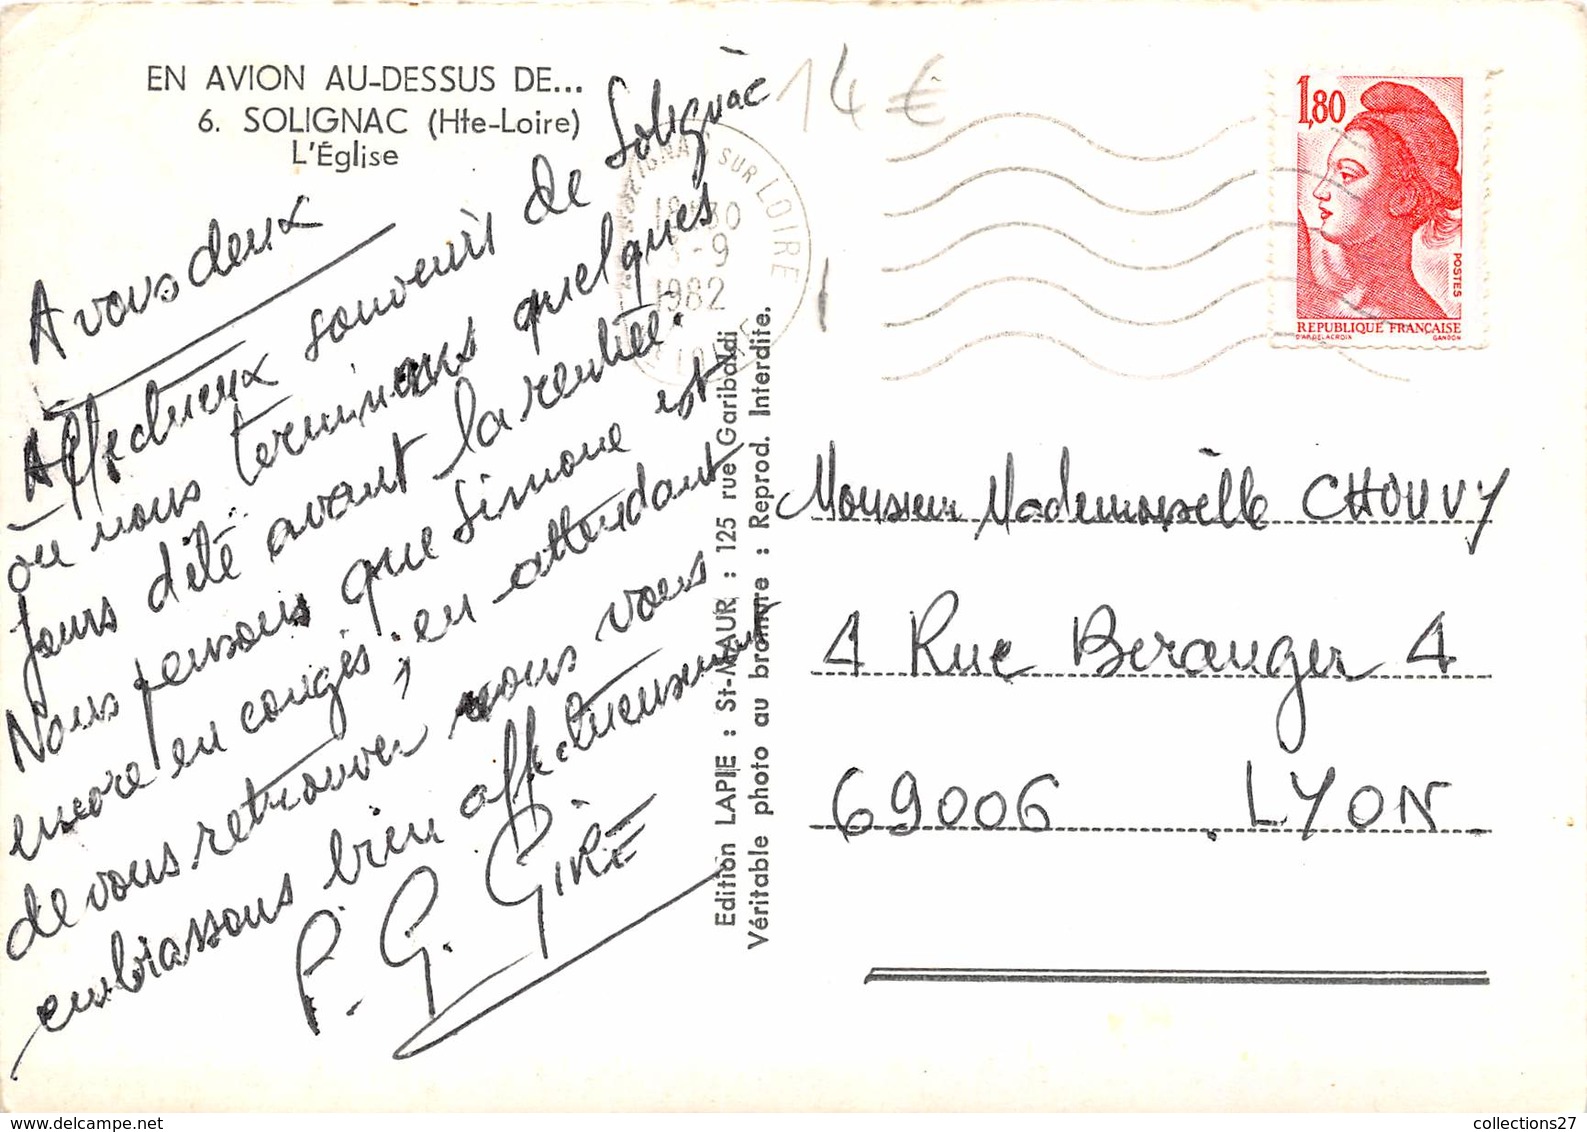 EN AVION AU-DESSUS DE...
6. SOLIGNAC (Hte-Loire)
L'Église
14 €
A vous deux
Affectueux souvenir de Solignac
où nous terminons quelques
jours d'été avant la rentrée.
Nous pensons que Simone est
encore en congés, en attendant
de vous retrouver nous vous
embrassons bien affectueusement
P. G. GIRE
SOLIGNAC SUR LOIRE
-9
1982
LOIRE
Edition LAPIE : St-MAUR : 125 rue Garibaldi
Véritable photo au bromure : Reprod. Interdite.
1,80
POSTES
REPUBLIQUE FRANÇAISE
D'AP. DELACROIX GANDON
Monsieur Mademoiselle CHOUVY
4 Rue Beranger 4
69006 LYON
collections27